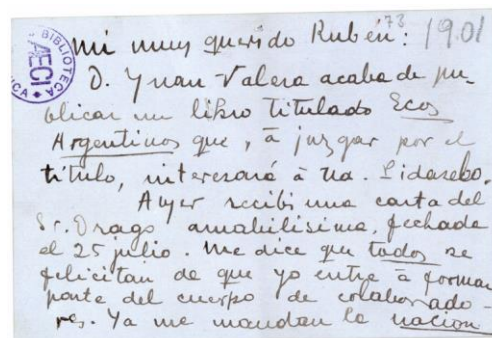 mi muy querido Rubén: 73 1901
BIBLIOTECA AECI
D. Yuan Valera acaba de pu-
blicar un libro titulado Ecos
Argentinos que, à juzgar por el
título, interesará à Ud.
Ayer recibi una carta del
Sr. Drago amabilisima, fechada
el 25 julio. Me dice que todos se
felicitan de que yo entre à formar
parte del cuerpo de colaborado-
res. Ya me mandan la nacion